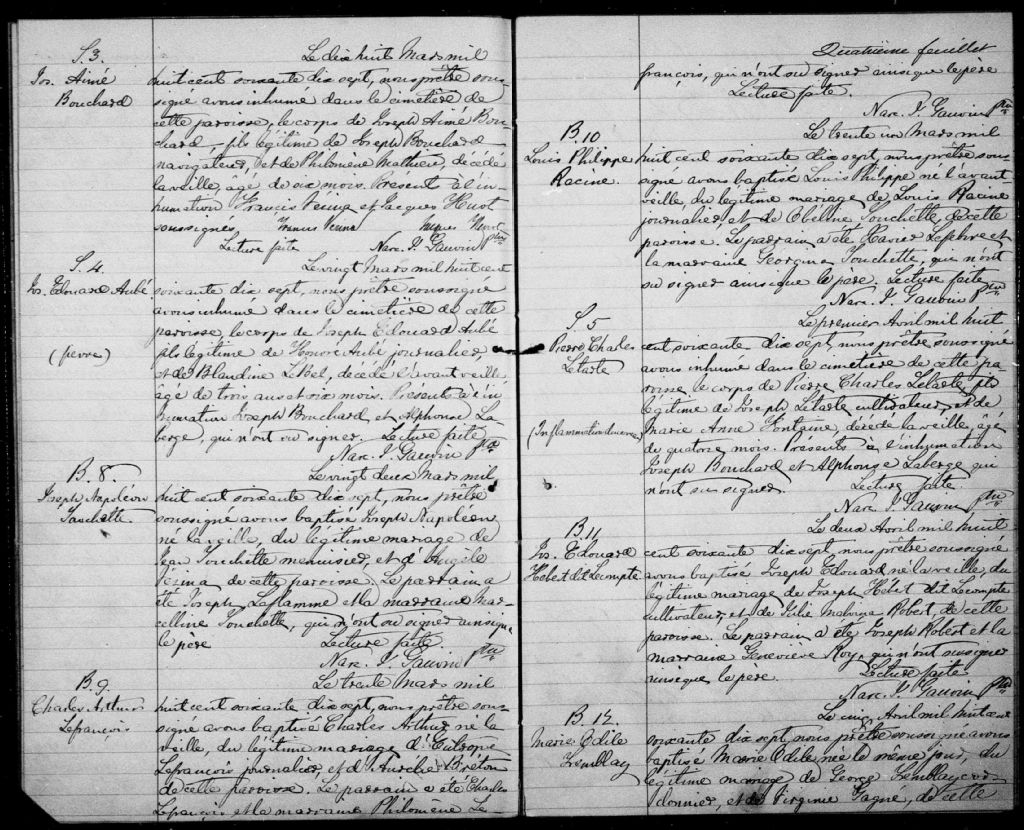 S. 3.
Jos. Aimé
Bouchard
Le dix huit Mars mil
huit cent soixante dix sept, nous prêtre sous-
signé avons inhumé dans le cimetière de
cette paroisse, le corps de Joseph Aimé Bou-
chard, fils légitime de Joseph Bouchard
navigateur, et de Philomène Mathieu, décédé
la veille, âgé de six mois. Présent à l'in-
humation Francis et Jacques Huot
soussignés.
Lecture faite Narc. J. Gauvin Ptre
S. 4.
Jos. Edouard Aubé
(fievre)
Le vingt Mars mil huit cent
soixante dix sept, nous prêtre soussigné
avons inhumé dans le cimetière de cette
paroisse, le corps de Joseph Edouard Aubé
fils légitime de Honoré Aubé journalier
et de Blandine LeBel, décédé l'avant veille,
âgé de trois ans et six mois. Présents à l'in-
humation Joseph Bouchard et Alphonse La-
berge, qui n'ont su signer. Lecture faite
Narc. J. Gauvin Ptre
B. 8.
Joseph Napoléon
Touchette
Le vingt deux Mars mil
huit cent soixante dix sept, nous prêtre
soussigné avons baptisé Joseph Napoléon,
né la veille, du légitime mariage de
Jean Touchette menuisier, et d'Angèle
Vezina de cette paroisse. Le parrain a
été Joseph Laflamme et la marraine Mar-
celline Touchette, qui n'ont su signer ainsi que
le père Lecture faite.
Narc. J. Gauvin Ptre
B. 9.
Charles Arthur
Lefrançois
Le trente Mars mil
huit cent soixante dix sept, nous prêtre sous-
signé avons baptisé Charles Arthur né la
veille, du légitime mariage d'Eutrope
Lefrançois journalier, et d'Aurélie Breton
de cette paroisse. Le parrain a été Charles
Lefrançois et la marraine Philomène Le-
Quatrième feuillet
françois, qui n'ont su signer ainsi que le père
Lecture faite.
Narc. J. Gauvin Ptre
B. 10
Louis Philippe
Racine.
Le trente un Mars mil
huit cent soixante dix sept, nous prêtre sous-
signé avons baptisé Louis Philippe né l'avant
veille, du légitime mariage de Louis Racine
journalier, et de Obeline Touchette, de cette
paroisse. Le parrain a été Xavier Lefebvre et
la marraine Georgina Touchette, que n'ont
su signer ainsi que le père. Lecture faite
Narc. J. Gauvin Ptre
S. 5
Pierre Charles
Letarte
(Inflammation )
Le premier Avril mil huit
cent soixante dix sept, nous prêtre soussigné
avons inhumé dans le cimetière de cette pa-
roisse le corps de Pierre Charles Letarte, fils
légitime de Joseph Letarte cultivateur, et de
Marie Anne Fontaine, décédé la veille, âgé
de quatorze mois. Présents à l'inhumation
Joseph Bouchard et Alphonse Laberge qui
n'ont su signer. Lecture faite.
Narc. J. Gauvin Ptre
B. 11
Jos. Edouard
Hébert dit Lecompte
Le deux Avril mil huit
cent soixante dix sept, nous prêtre soussigné
avons baptisé Joseph Edouard, né la veille, du
légitime mariage de Joseph Hébert dit Lecompte
cultivateur, et de Julie Malvina Robert, de cette
paroisse. Le parrain a été Joseph Robert et la
marraine Geneviève Roy, qui n'ont su signer
ainsi que le père. Lecture faite
Narc. J. Gauvin Ptre
B. 12.
Marie Odile
Tremblay
Le cinq Avril mil huit cent
soixante dix sept nous prêtre soussigné avons
baptisé Marie Odile née le même jour, du
légitime mariage de George Tremblay cor-
donnier, et de Virginie Gagné, de cette